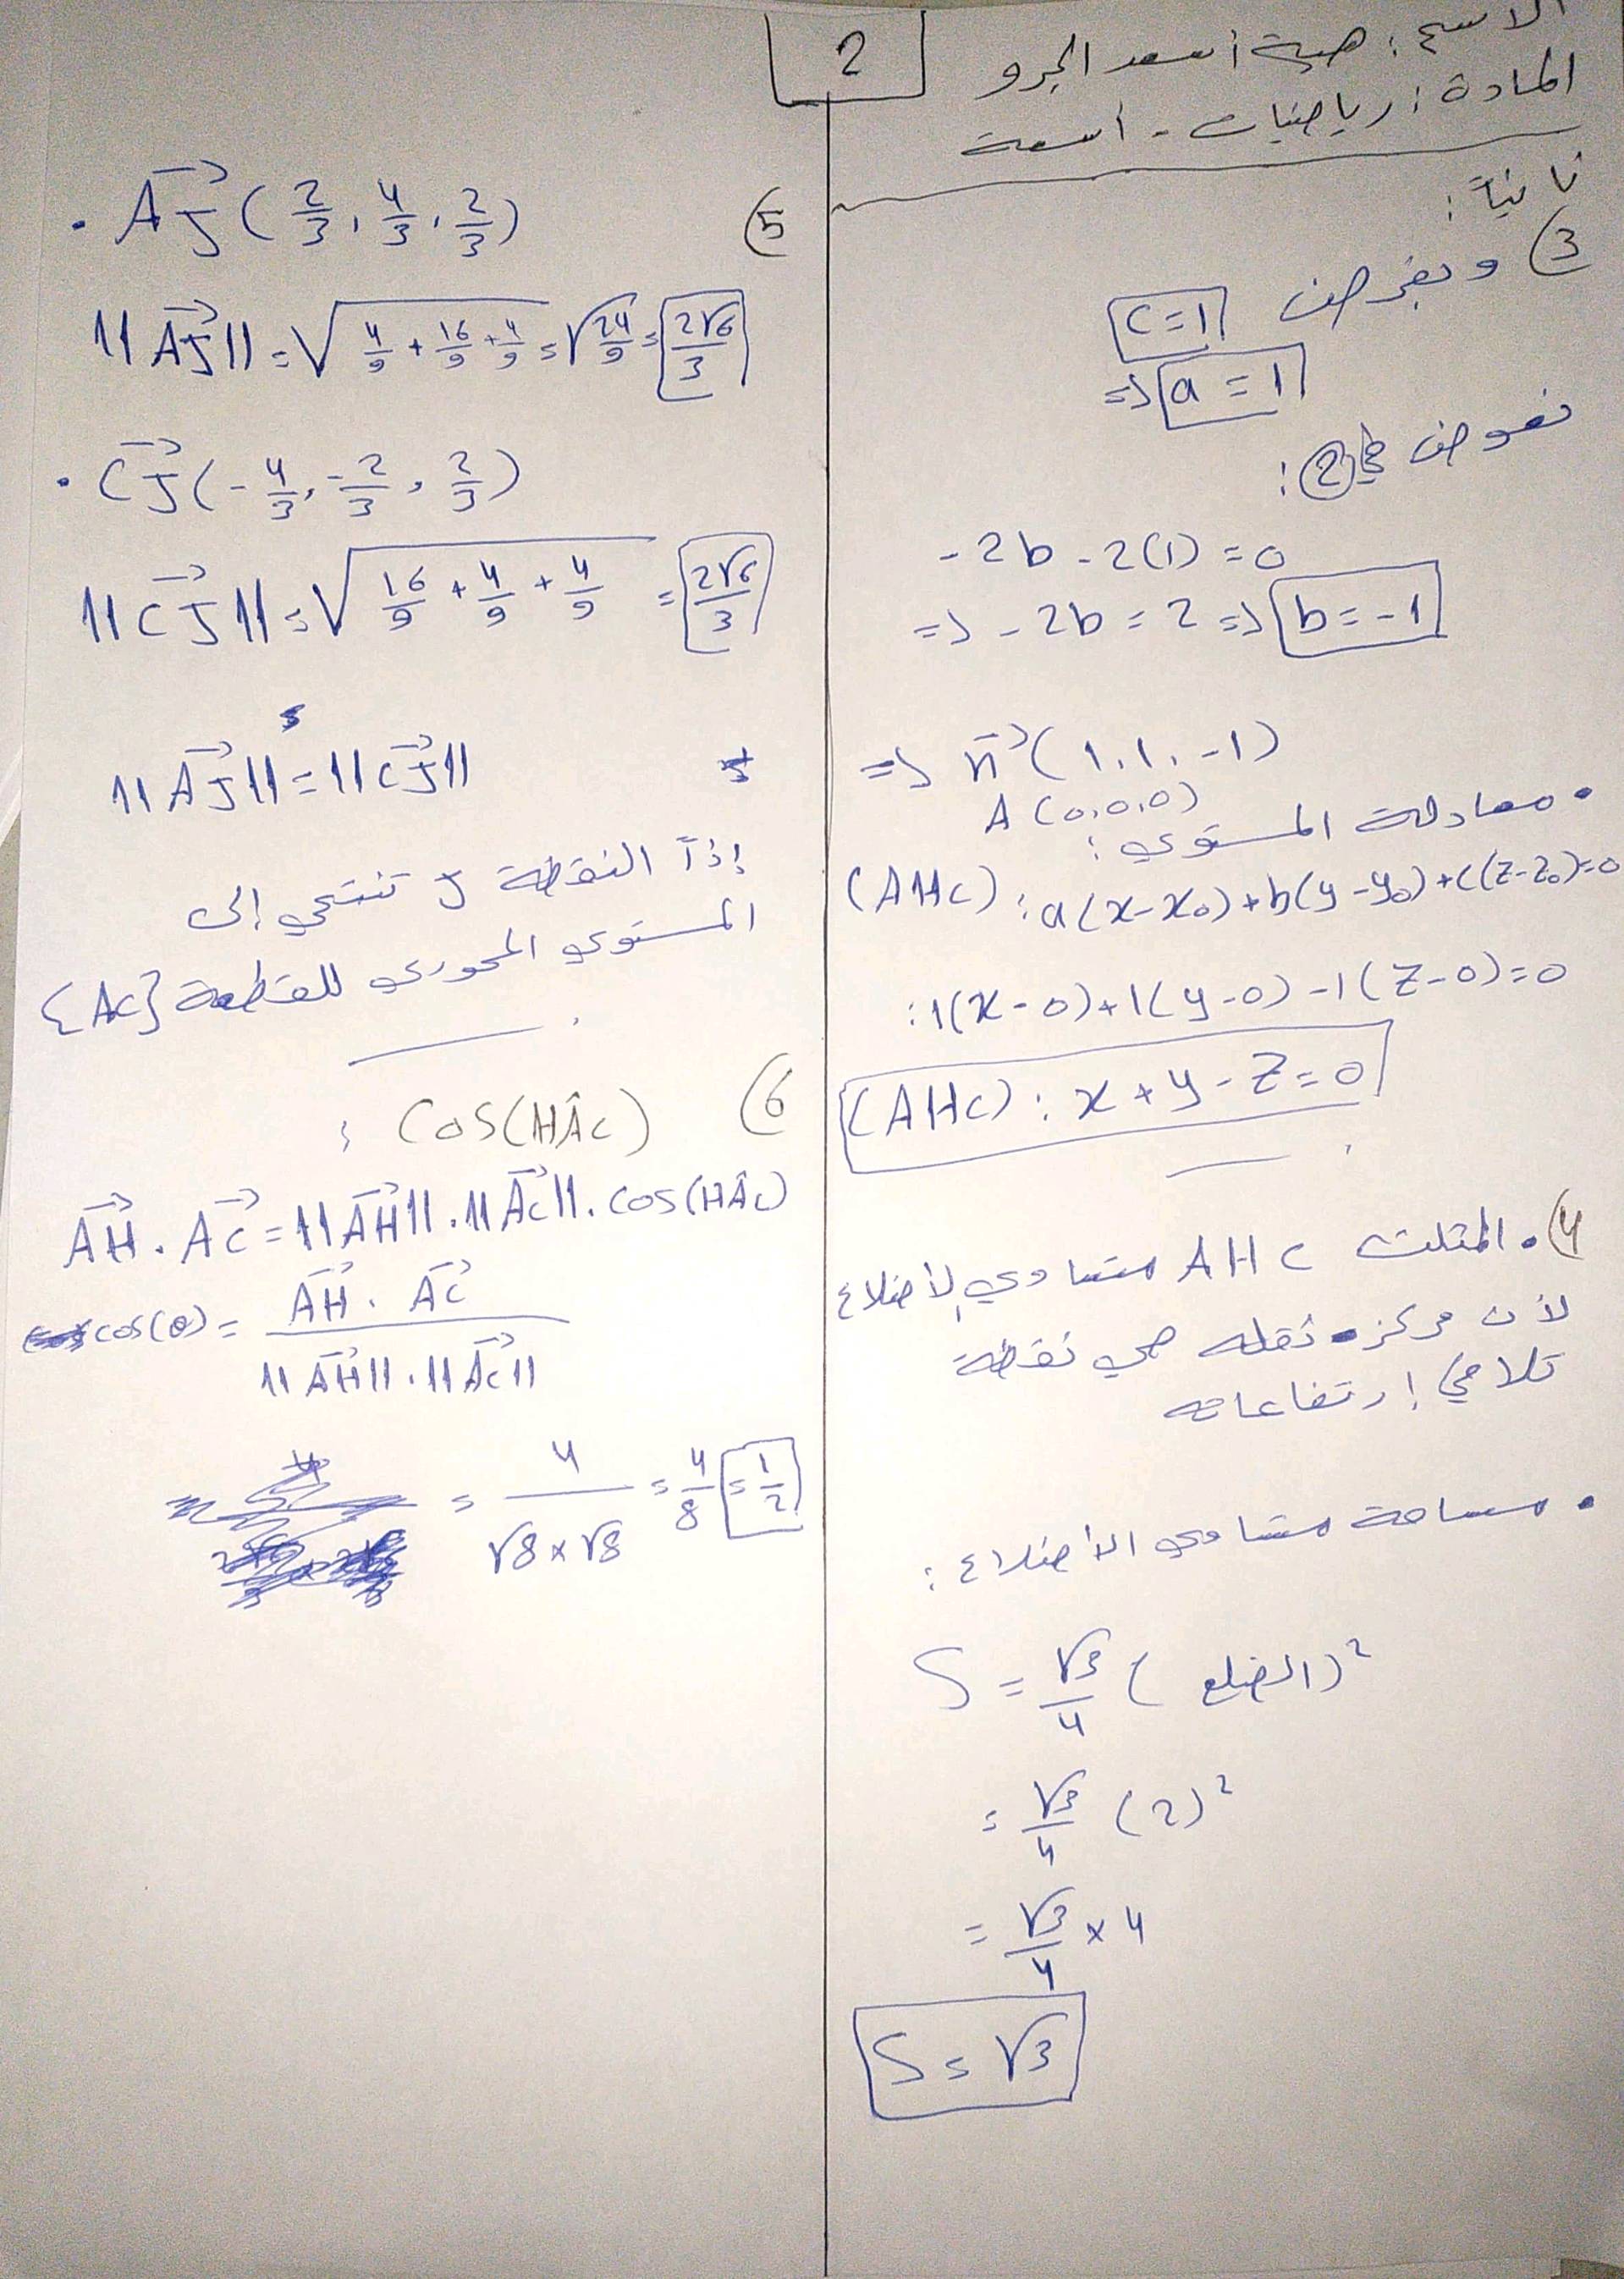 2
الاسم: هبة أسعد الجرو
المادة: رياضيات - أتمتة
ثانياً:
③ وبفرض C=1
=> a = 1
نعوض في ②:
- 2b - 2(1) = 0
=> - 2b = 2 => b = -1
=> n⃗ (1, 1, -1)
A (0,0,0)
• معادلة المستوي:
(AHC): a(x-x₀)+b(y-y₀)+c(z-z₀)=0
: 1(x-0)+1(y-0)-1(z-0)=0
(AHC): x+y-z=0
④ • المثلث AHC متساوي الأضلاع
لأن مركز ثقله هي نقطة
تلاقي ارتفاعاته
• مساحة متساوي الأضلاع:
S = √3/4 (الضلع)²
= √3/4 (2)²
= √3/4 × 4
S = √3
⑤
• AJ⃗ (2/3, 4/3, 2/3)
||AJ⃗|| = √(4/9 + 16/9 + 4/9) = √(24/9) = 2√6/3
• CJ⃗ (-4/3, -2/3, 2/3)
||CJ⃗|| = √(16/9 + 4/9 + 4/9) = 2√6/3
||AJ⃗|| = ||CJ⃗||
إذاً النقطة J تنتمي إلى
المستوي المحوري للقطعة [AC]
⑥ cos(HÂC) :
AH⃗ . AC⃗ = ||AH⃗|| . ||AC⃗|| . cos(HÂC)
cos(θ) = AH⃗ . AC⃗ / ||AH⃗|| . ||AC⃗||
= 4/(√8 × √8) = 4/8 = 1/2